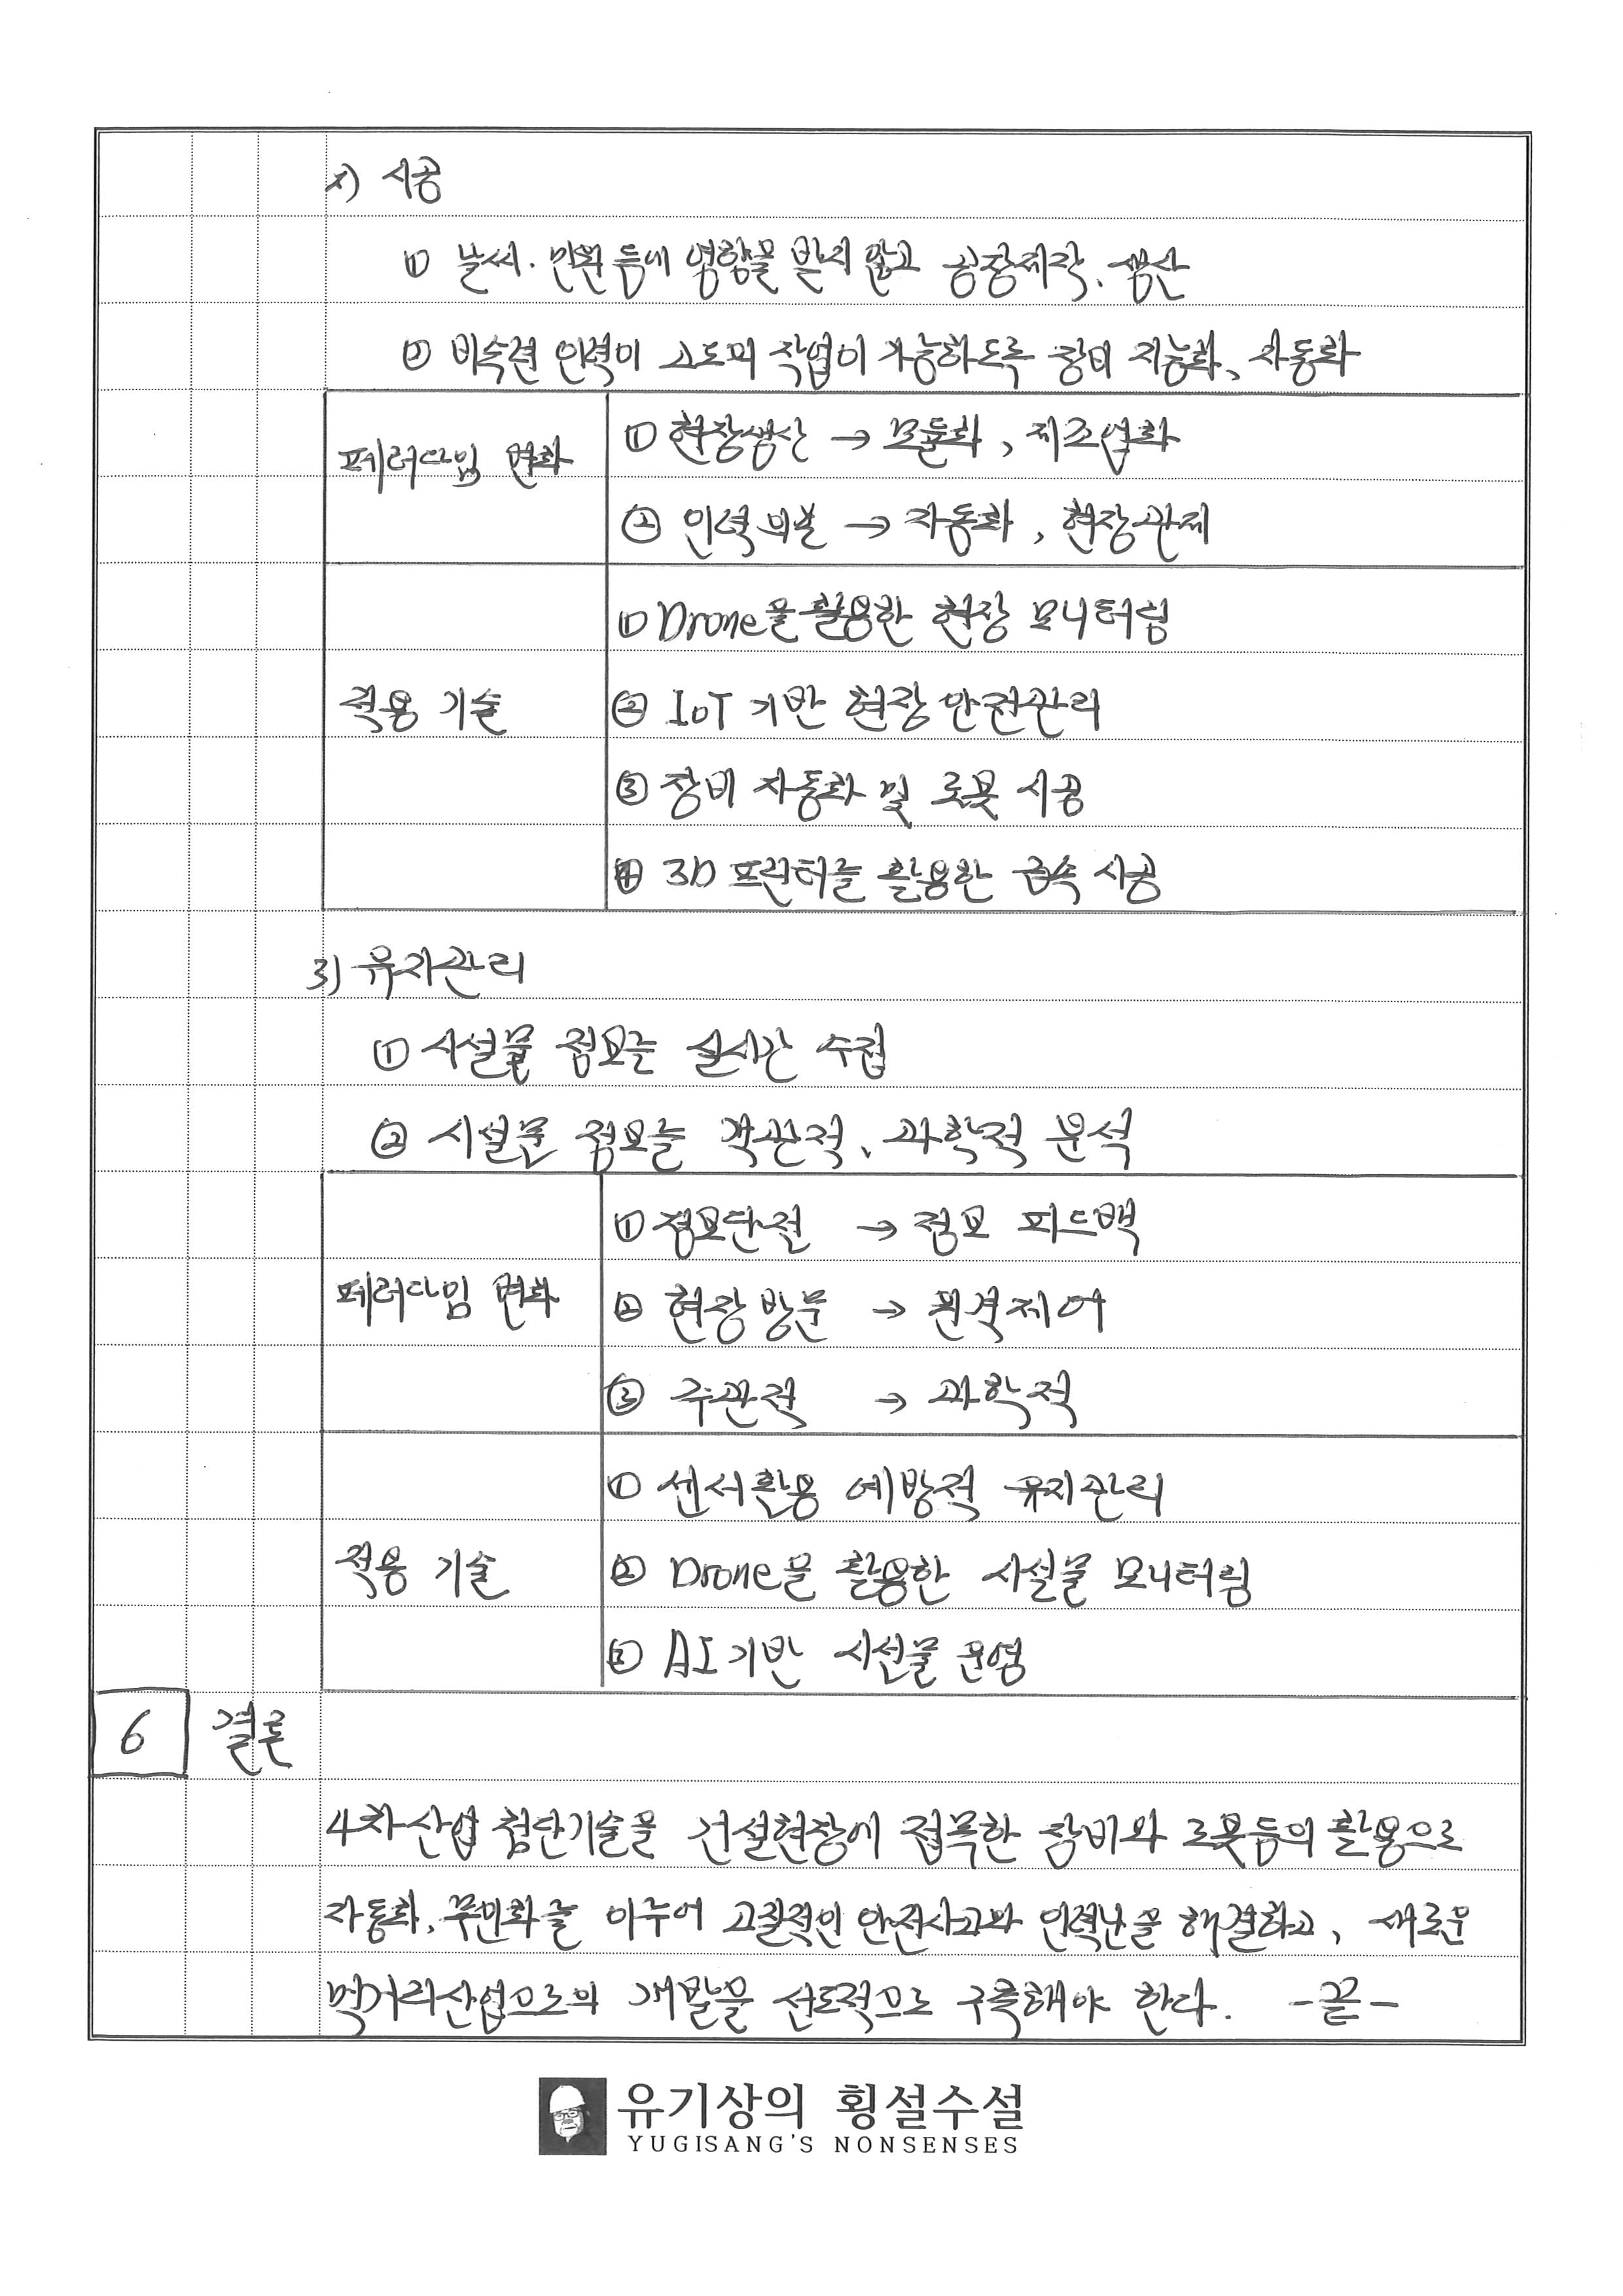 2) 시공
① 날씨·민원 등에 영향을 받지 않고 공장제작·생산
② 비숙련 인력이 고도의 작업이 가능하도록 장비 지능화, 자동화
페러다임 변화
① 현장생산 → 모듈화, 제조업화
② 인력의존 → 자동화, 현장관제
적용 기술
① Drone을 활용한 현장 모니터링
② IoT 기반 현장 안전관리
③ 장비 자동화 및 로봇 시공
④ 3D 프린터를 활용한 급속 시공
3) 유지관리
① 시설물 정보를 실시간 수집
② 시설물 정보를 객관적, 과학적 분석
페러다임 변화
① 정보단절 → 정보 피드백
② 현장방문 → 원격제어
③ 주관적 → 과학적
적용 기술
① 센서활용 예방적 유지관리
② Drone을 활용한 시설물 모니터링
③ AI기반 시설물 운영
6 결론
4차산업 첨단기술을 건설현장에 접목한 장비와 로봇등의 활용으로
자동화, 무인화를 이루어 고질적인 안전사고와 인력난을 해결하고, 새로운
먹거리산업으로의 개발을 선도적으로 구축해야 한다. -끝-
유기상의 횡설수설
YUGISANG'S NONSENSES